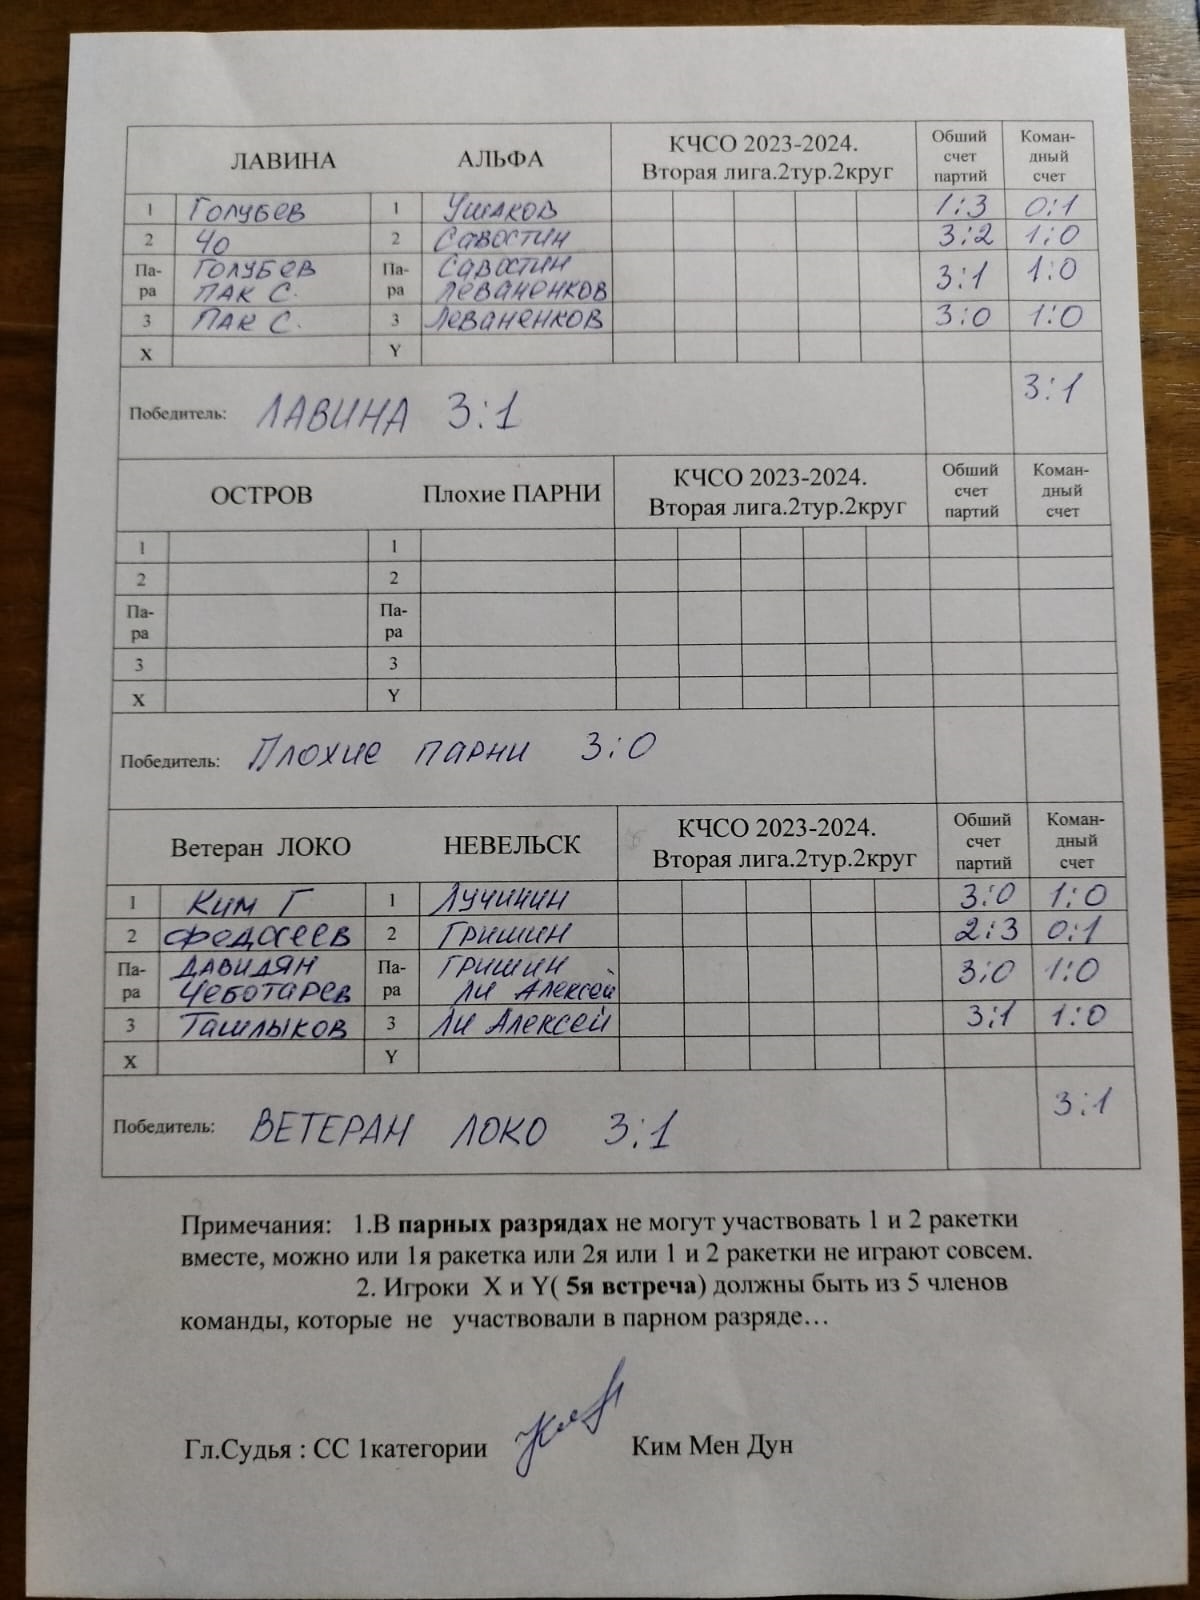 ЛАВИНА АЛЬФА КЧСО 2023-2024. Вторая лига.2тур.2круг Обший счет партий Коман-дный счет
1 Голубев 1 Ушаков 1:3 0:1
2 Чо 2 Савостин 3:2 1:0
Па-ра Голубев Пак С. Па-ра Савостин Леваненков 3:1 1:0
3 Пак С. 3 Леваненков 3:0 1:0
X Y
Победитель: ЛАВИНА 3:1 3:1
ОСТРОВ Плохие ПАРНИ КЧСО 2023-2024. Вторая лига.2тур.2круг Обший счет партий Коман-дный счет
1 1
2 2
Па-ра Па-ра
3 3
X Y
Победитель: Плохие парни 3:0
Ветеран ЛОКО НЕВЕЛЬСК КЧСО 2023-2024. Вторая лига.2тур.2круг Обший счет партий Коман-дный счет
1 Ким Г 1 Лучинин 3:0 1:0
2 Федосеев 2 Гришин 2:3 0:1
Па-ра Давидян Чеботарев Па-ра Гришин Ли Алексей 3:0 1:0
3 Ташлыков 3 Ли Алексей 3:1 1:0
X Y
Победитель: ВЕТЕРАН ЛОКО 3:1 3:1
Примечания: 1.В парных разрядах не могут участвовать 1 и 2 ракетки
вместе, можно или 1я ракетка или 2я или 1 и 2 ракетки не играют совсем.
2. Игроки X и Y( 5я встреча) должны быть из 5 членов
команды, которые не участвовали в парном разряде…
Гл.Судья : СС 1категории Ким Мен Дун